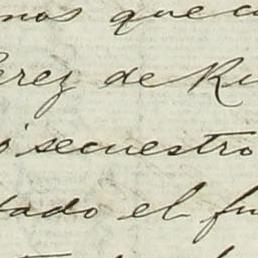 mos que c
érez de Ru
ó secuestro
tado el fu